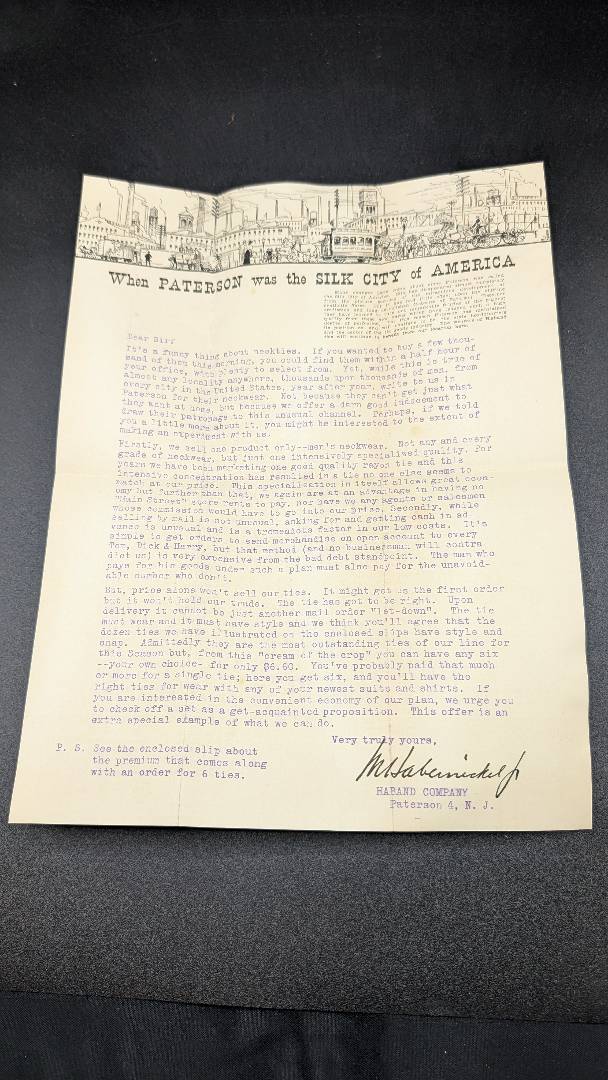 When PATERSON was the SILK CITY of AMERICA
Dear Sir:
It's a funny thing about neckties. If you wanted to buy a few thou-
sand of them this morning, you could find them within a half hour of
your office, with plenty to select from. Yet, while this is true of
almost any locality anywhere, thousands upon thousands of men, from
every city in the United States, year after year, write to us in
Paterson for their neckwear. Not because they can't get just what
they want at home, but because we offer a darn good inducement to
draw their patronage to this unusual channel. Perhaps, if we told
you a little more about it, you might be interested to the extent of
making an experiment with us.
Firstly, we sell one product only--men's neckwear. Not any and every
grade of neckwear, but just one intensively specialized quality. For
years we have been marketing one good quality rayon tie and this
intensive concentration has resulted in a tie no one else seems to
match at our price. This specialization in itself allows great econ-
omy but further than that, we again are at an advantage in having no
"Main Street" store rents to pay, nor have we any agents or salesmen
whose commission would have to go into our price. Secondly, while
selling by mail is not unusual, asking for and getting cash in ad-
vance is unusual and is a tremendous factor in our low costs. It's
simple to get orders to send merchandise on open account to every
Tom, Dick & Harry, but that method (and no businessman will contra
dict us) is very expensive from the bad debt standpoint. The man who
pays for his goods under such a plan must also pay for the unavoid-
able number who don't.
But, price alone won't sell our ties. It might get us the first order
but it won't hold our trade. The tie has got to be right. Upon
delivery it cannot be just another mail order "let-down". The tie
must wear and it must have style and we think you'll agree that the
dozen ties we have illustrated on the enclosed slips have style and
snap. Admittedly they are the most outstanding ties of our line for
this Season but, from this "cream of the crop" you can have any six
--your own choice- for only $6.60. You've probably paid that much
or more for a single tie; here you get six, and you'll have the
right ties for wear with any of your newest suits and shirts. If
you are interested in the convenient economy of our plan, we urge you
to check off a set as a get-acquainted proposition. This offer is an
extra special example of what we can do.
Very truly yours,
P. S. See the enclosed slip about
the premium that comes along
with an order for 6 ties.
M Habernickel Jr
HABAND COMPANY
Paterson 4, N. J.